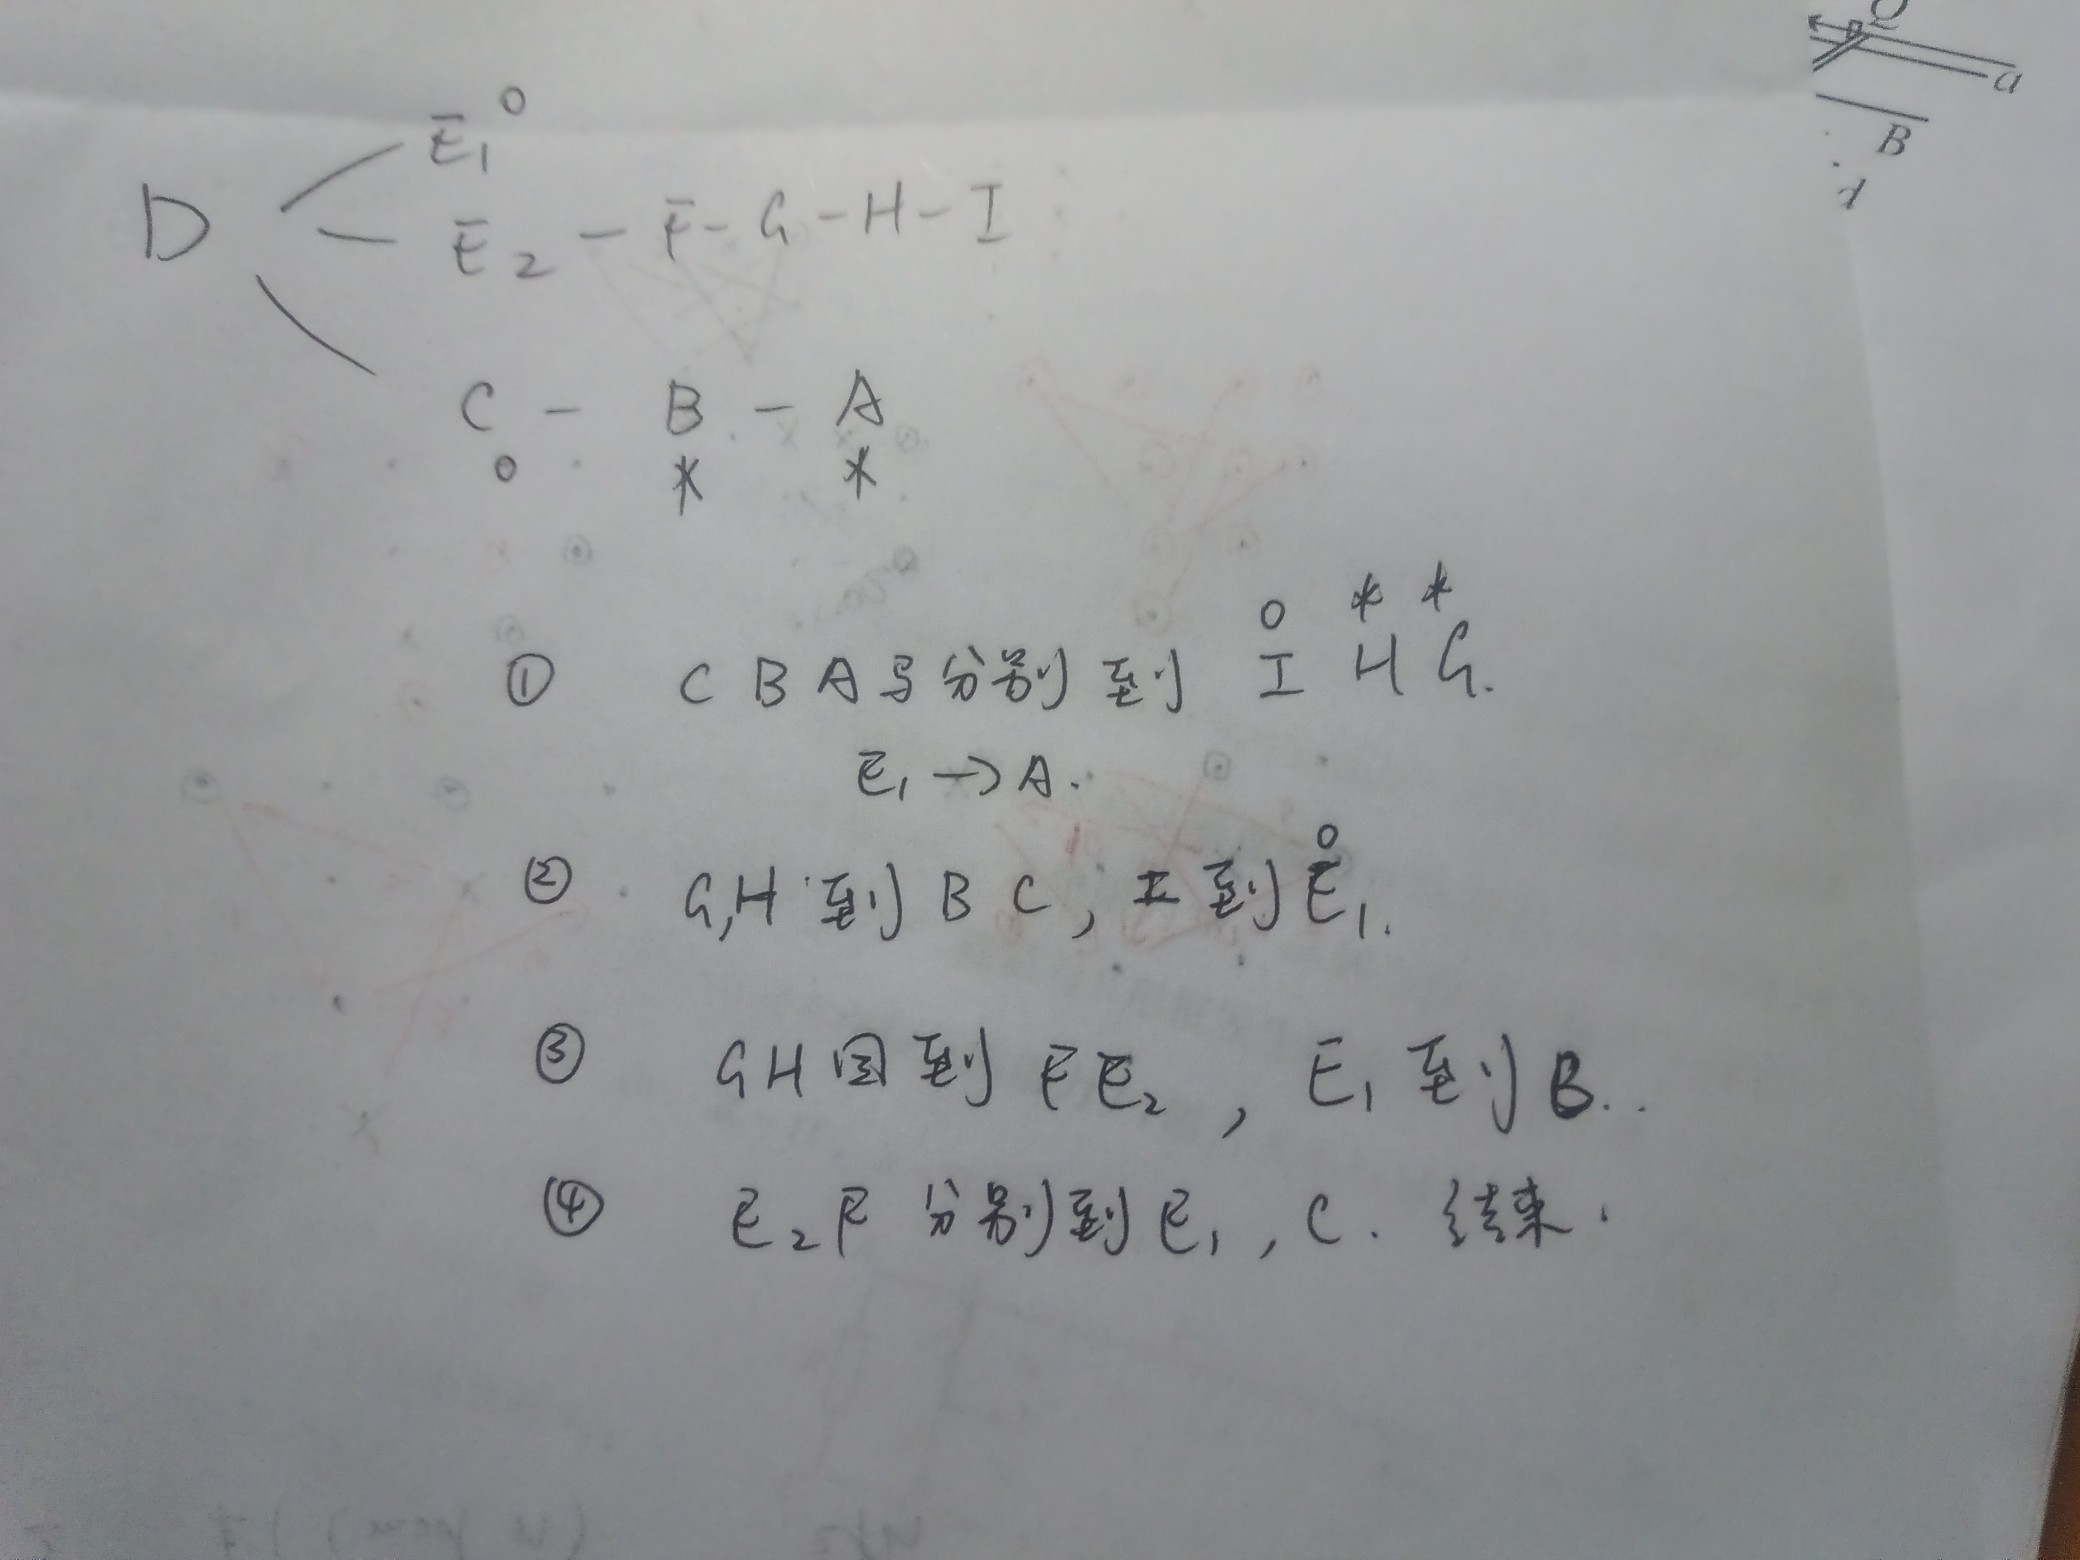 Q
a
B
E₁ O
D
E₂ - F - G - H - I
C - B - A
O * *
O * *
① C B A马分别到 I H G.
E₁ → A.
O
② G,H到 B C, I到E₁.
③ G H回到 F E₂, E₁到 B..
④ E₂ F 分别到E₁, C. 结束.